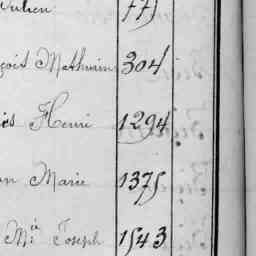 Julien 775
çois Mathurin 304
is Henri 1294
n Marie 1375
Mie Joseph 1543